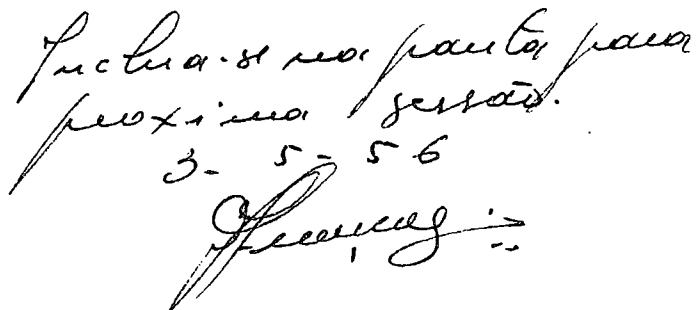 Inclua-se na pauta para
proxima sessão.
3-5-56